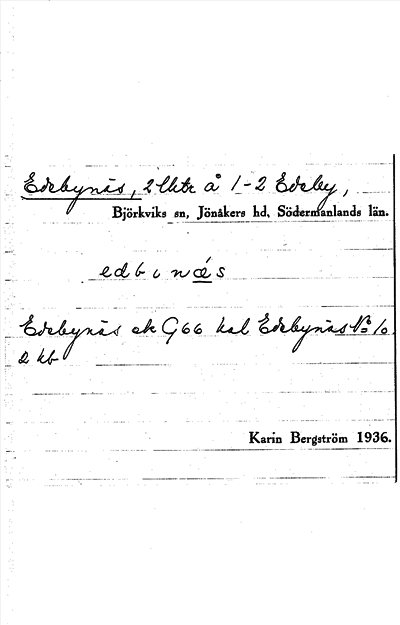 Edebynäs, 2 lhtr å 1-2 Edeby,
Björkviks sn, Jönåkers hd, Södermanlands län.
edbinǽs
Edebynäs ek G66 hal Edebynäs No 10
2 kb
Karin Bergström 1936.